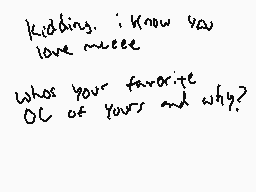 Kidding. i know you
love meeee
whos your favorite
OC of yours and why?